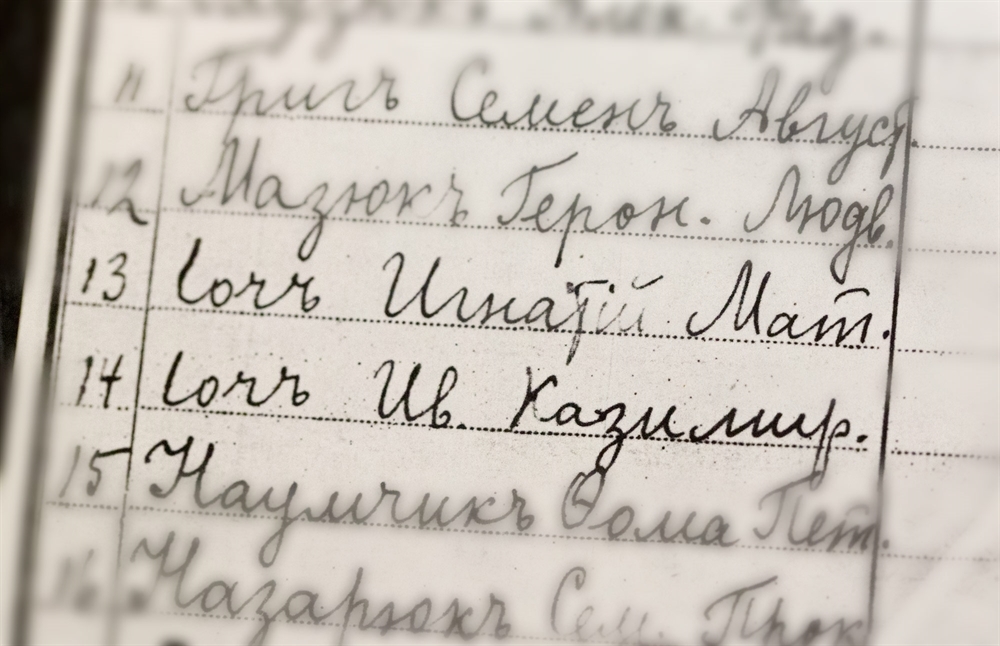 11 Григъ Семенъ Август.
12 Мазюкъ Герон. Людв.
13 Сочъ Игнатій Мат.
14 Сочъ Ив. Казимир.
15 Наумчикъ Ѳома Пет.
16 Назарюкъ Сем. Прок